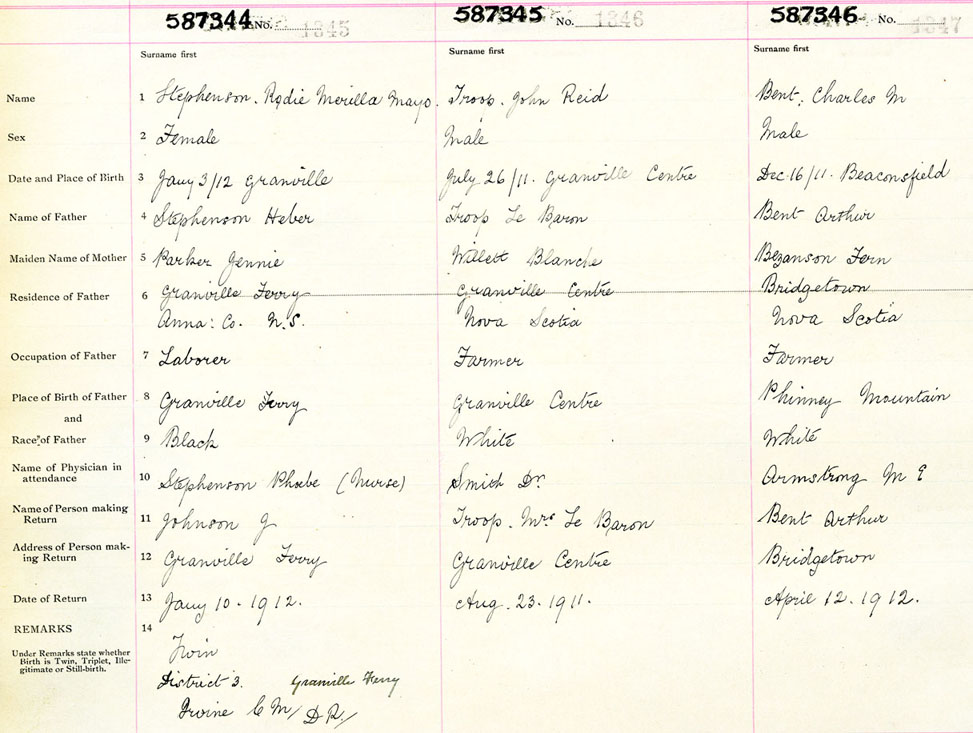 587344 No. 1345 587345 No. 1346 587346 No. 1347
Surname first Surname first Surname first
Name 1 Stephenson. Rodie Merilla Mayo. Troop. John Reid Bent, Charles M
Sex 2 Female Male Male
Date and Place of Birth 3 Jany 3/12 Granville July 26/11. Granville Centre Dec 16/11. Beaconsfield
Name of Father 4 Stephenson Heber Troop Le Baron Bent Arthur
Maiden Name of Mother 5 Parker Jennie Willett Blanche Bezanson Fern
Residence of Father 6 Granville Ferry Granville Centre Bridgetown
Anna: Co. N.S. Nova Scotia Nova Scotia
Occupation of Father 7 Laborer Farmer Farmer
Place of Birth of Father 8 Granville Ferry Granville Centre Phinney Mountain
and
Race of Father 9 Black White White
Name of Physician in
attendance 10 Stephenson Phoebe (Nurse) Smith Dr. Armstrong M E
Name of Person making
Return 11 Johnson J Troop. Mrs Le Baron Bent Arthur
Address of Person mak-
ing Return 12 Granville Ferry Granville Centre Bridgetown
Date of Return 13 Jany 10 - 1912. Aug. 23. 1911. April 12. 1912.
REMARKS 14
Under Remarks state whether
Birth is Twin, Triplet, Ille-
gitimate or Still-birth.
Twin
District 3. Granville Ferry
Irvine C M/ D R/